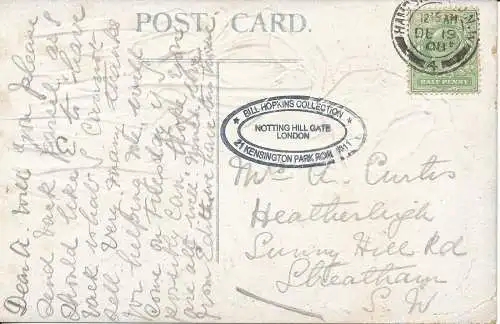 POST CARD.
HAMPSTEAD N.W.
12.15 AM
DE 19
08
4
HALF PENNY
★ BILL HOPKINS COLLECTION ★
NOTTING HILL GATE
LONDON
21 KENSINGTON PARK ROW, W11
Dear A. Will you please
send back
should like to have
back what I cannot
sell. Very many thanks
for helping me. Will
come on Tuesday if I
possibly can. Hope you
are all well. Much love
from Edith
Mrs A. Curtis
Heatherleigh
Sunny Hill Rd
Streatham
S.W